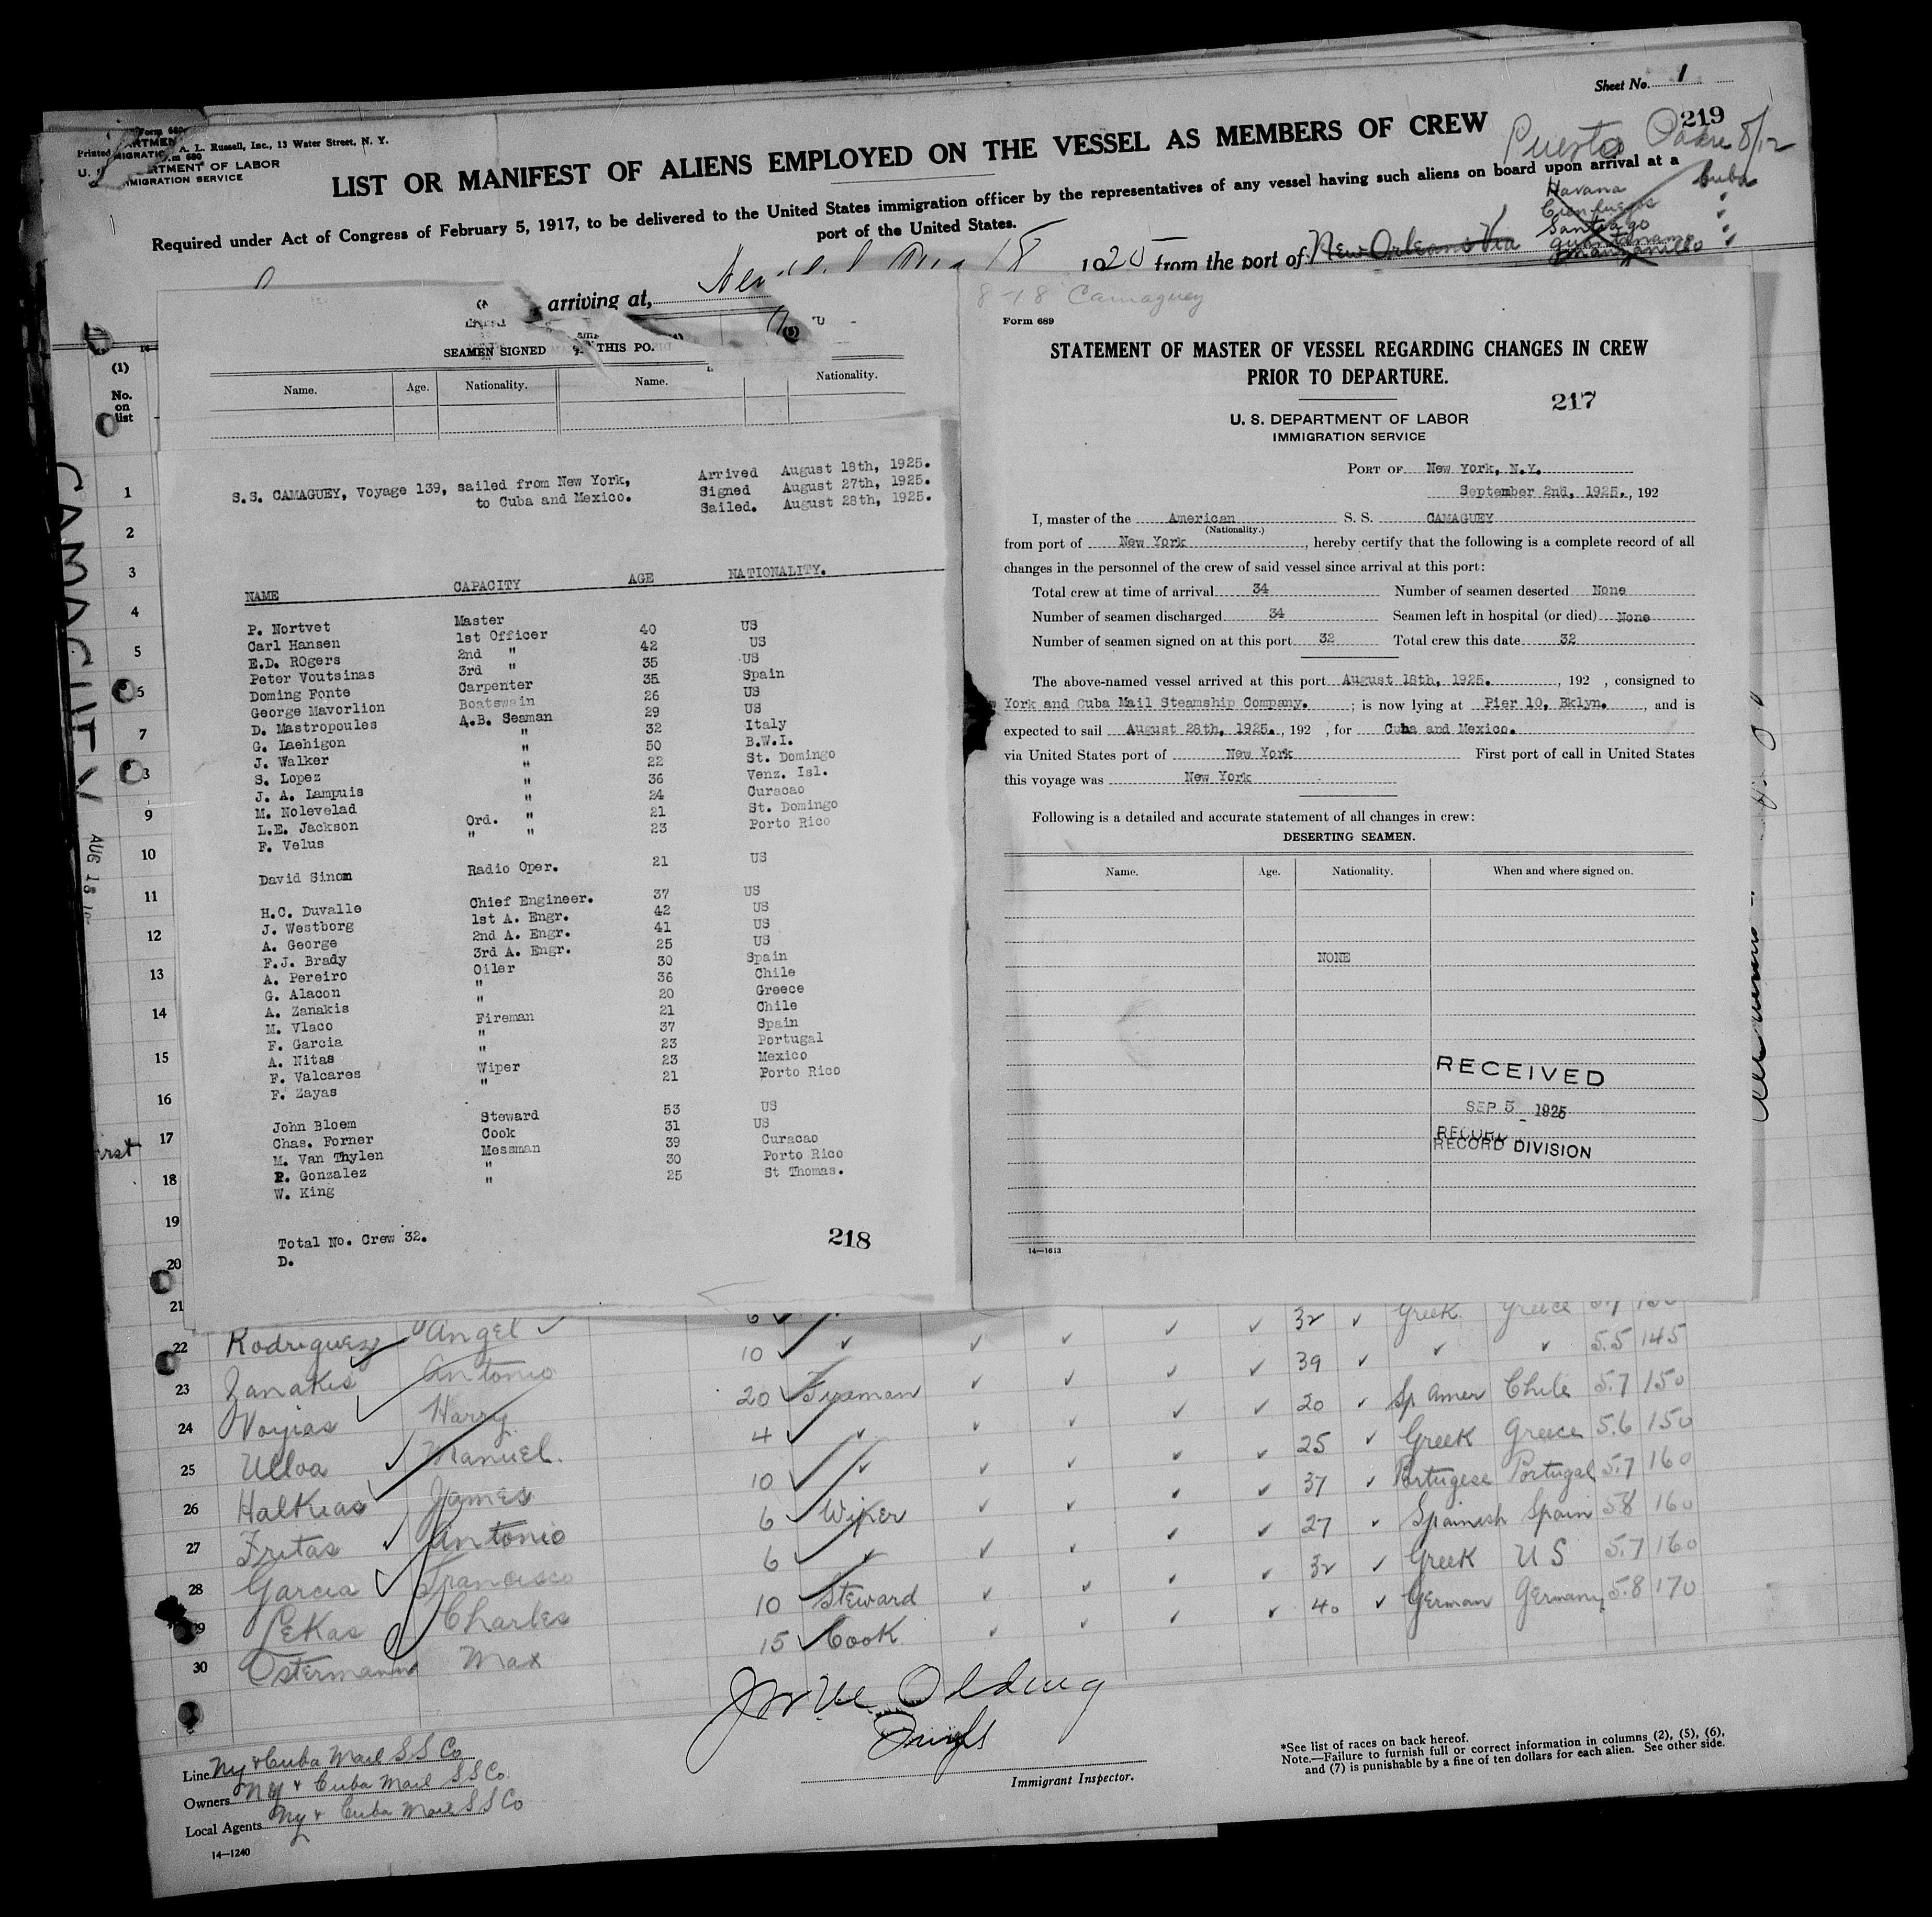 Sheet No. 1
219
Form 680
Printed A. L. Russell, Inc., 13 Water Street, N. Y.
DEPARTMENT OF LABOR
IMMIGRATION SERVICE
LIST OR MANIFEST OF ALIENS EMPLOYED ON THE VESSEL AS MEMBERS OF CREW
Puerto Padre 8/12
Cuba
Required under Act of Congress of February 5, 1917, to be delivered to the United States immigration officer by the representatives of any vessel having such aliens on board upon arrival at a
port of the United States.
Havana
Cienfuegos
Santiago
Guantanamo
Manzanillo
arriving at, 18 1925 from the port of New Orleans Via
SEAMEN SIGNED THIS PO
Name. Age. Nationality. Name. Nationality.
(1)
No.
on
list
CAMAGUEY AUG 18
S.S. CAMAGUEY, Voyage 139, sailed from New York,
to Cuba and Mexico.
Arrived August 18th, 1925.
Signed August 27th, 1925.
Sailed. August 28th, 1925.
NAME CAPACITY AGE NATIONALITY.
P. Nortvet Master 40 US
Carl Hansen 1st Officer 42 US
E.D. ROgers 2nd " 35 US
Peter Voutsinas 3rd " 35 Spain
Doming Fonte Carpenter 26 US
George Mavorlion Boatswain 29 US
D. Mastropoules A.B. Seaman 32 Italy
G. Laehigon " 50 B.W.I.
J. Walker " 22 St. Domingo
S. Lopez " 36 Venz. Isl.
J. A. Lampuis " 24 Curacao
M. Nolevelad " 21 St. Domingo
L.E. Jackson Ord. " 23 Porto Rico
F. Velus " "
David Sinom Radio Oper. 21 US
H.C. Duvalle Chief Engineer. 37 US
J. Westborg 1st A. Engr. 42 US
A. George 2nd A. Engr. 41 US
F.J. Brady 3rd A. Engr. 25 US
A. Pereiro Oiler 30 Spain
G. Alacon " 36 Chile
A. Zanakis " 20 Greece
M. Vlaco Fireman 21 Chile
F. Garcia " 37 Spain
A. Nitas " 23 Portugal
F. Valcares Wiper 23 Mexico
F. Zayas " 21 Porto Rico
John Bloem Steward 53 US
Chas. Forner Cook 31 US
M. Van Thylen Messman 39 Curacao
P. Gonzalez " 30 Porto Rico
W. King " 25 St Thomas.
Total No. Crew 32.
D.
218
8-18 Camaguey
Form 689
STATEMENT OF MASTER OF VESSEL REGARDING CHANGES IN CREW
PRIOR TO DEPARTURE.
217
U. S. DEPARTMENT OF LABOR
IMMIGRATION SERVICE
PORT OF New York, N.Y.
September 2nd, 1925., 192
I, master of the American S. S. CAMAGUEY
(Nationality.)
from port of New York, hereby certify that the following is a complete record of all
changes in the personnel of the crew of said vessel since arrival at this port:
Total crew at time of arrival 34 Number of seamen deserted None
Number of seamen discharged 34 Seamen left in hospital (or died) None
Number of seamen signed on at this port 32 Total crew this date 32
The above-named vessel arrived at this port August 18th, 1925. , 192 , consigned to
York and Cuba Mail Steamship Company. ; is now lying at Pier 10, Bklyn. , and is
expected to sail August 28th, 1925. , 192 , for Cuba and Mexico.
via United States port of New York First port of call in United States
this voyage was New York
Following is a detailed and accurate statement of all changes in crew:
DESERTING SEAMEN.
Name. Age. Nationality. When and where signed on.
NONE
RECEIVED
SEP 5 1925
RECORD
RECORD DIVISION
14—1613
1
2
3
4
5
7
9
10
11
12
13
14
15
16
17
18
19
20
21 6 32 Greek Greece 5.7 150
22 Rodriguez Angel 10 39 5.5 145
23 Zanakis Antonio 20 Fireman 20 Sp Amer Chile 5.7 150
24 Voyias Harry 4 25 Greek Greece 5.6 150
25 Ulloa Manuel. 10 37 Portugese Portugal 5.7 160
26 Halkias James 6 Wiper 27 Spainish Spain 5.8 160
27 Fritas Antonio 6 32 Greek U S 5.7 160
28 Garcia Francisco 10 Steward 40 German Germany 5.8 170
29 Pekas Charles 15 Cook
30 Ostermann Max
Olding
Immigrant Inspector.
Line Ny & Cuba Mail S S Co
Owners Ny & Cuba Mail S S Co.
Local Agents Ny & Cuba Mail S S Co
14—1240
*See list of races on back hereof.
Note.—Failure to furnish full or correct information in columns (2), (5), (6),
and (7) is punishable by a fine of ten dollars for each alien. See other side.